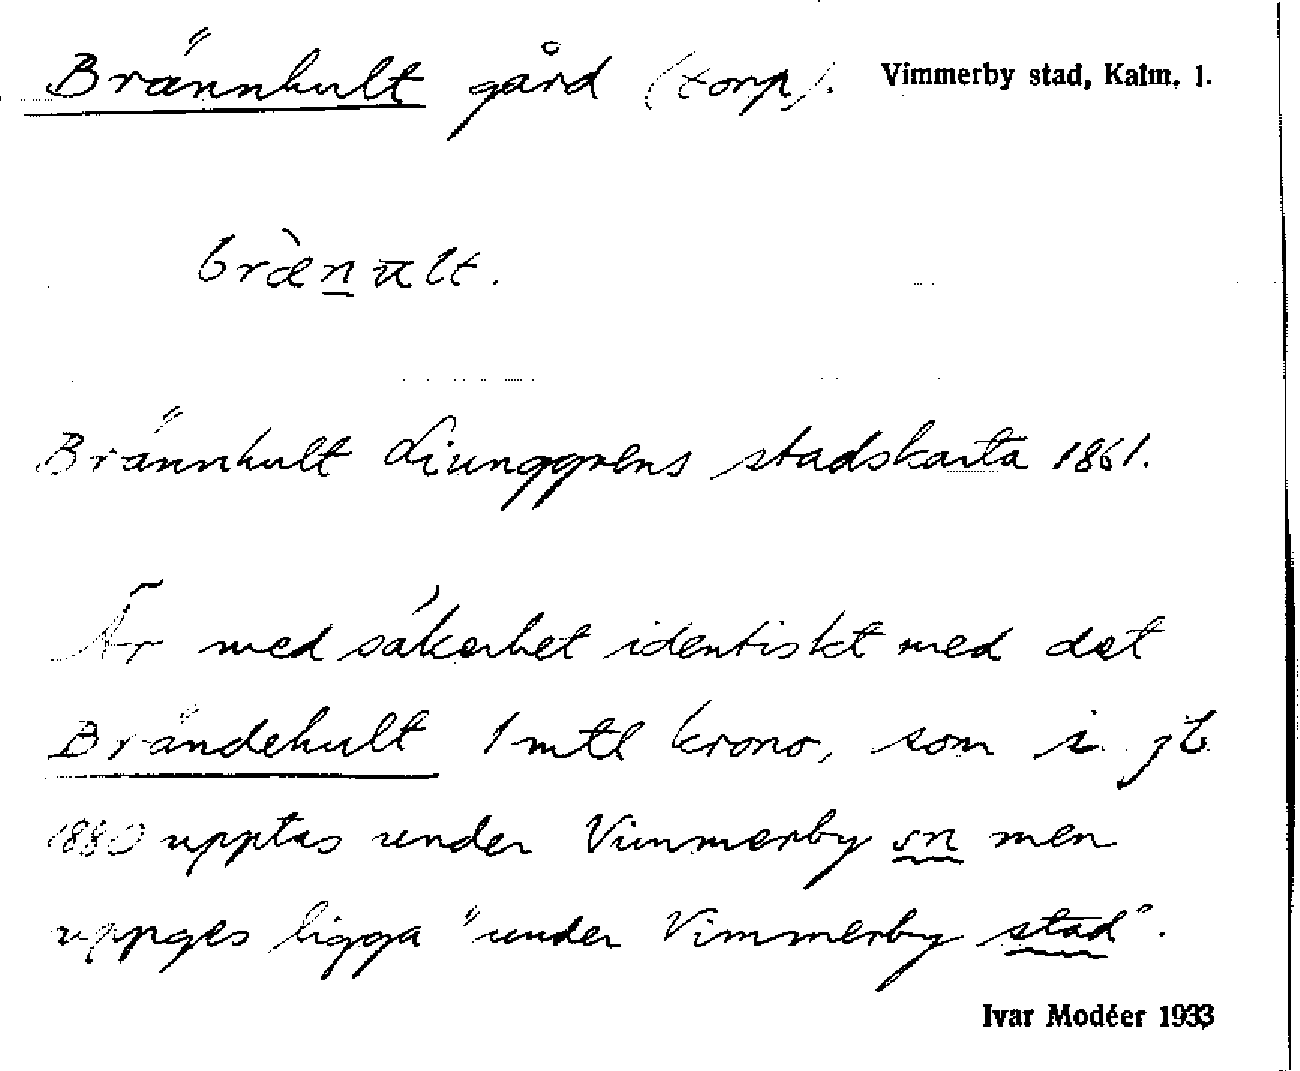 Brännhult gård (torp). Vimmerby stad, Kalm. l.
bræ̀n̲ult.
Brännhult Liunggrens stadskarta 1861.
Är med säkerhet identiskt med det
Brändehult 1 mtl krono, som i jb
1880 upptas under Vimmerby sn men
uppges ligga "under Vimmerby stad".
Ivar Modéer 1933